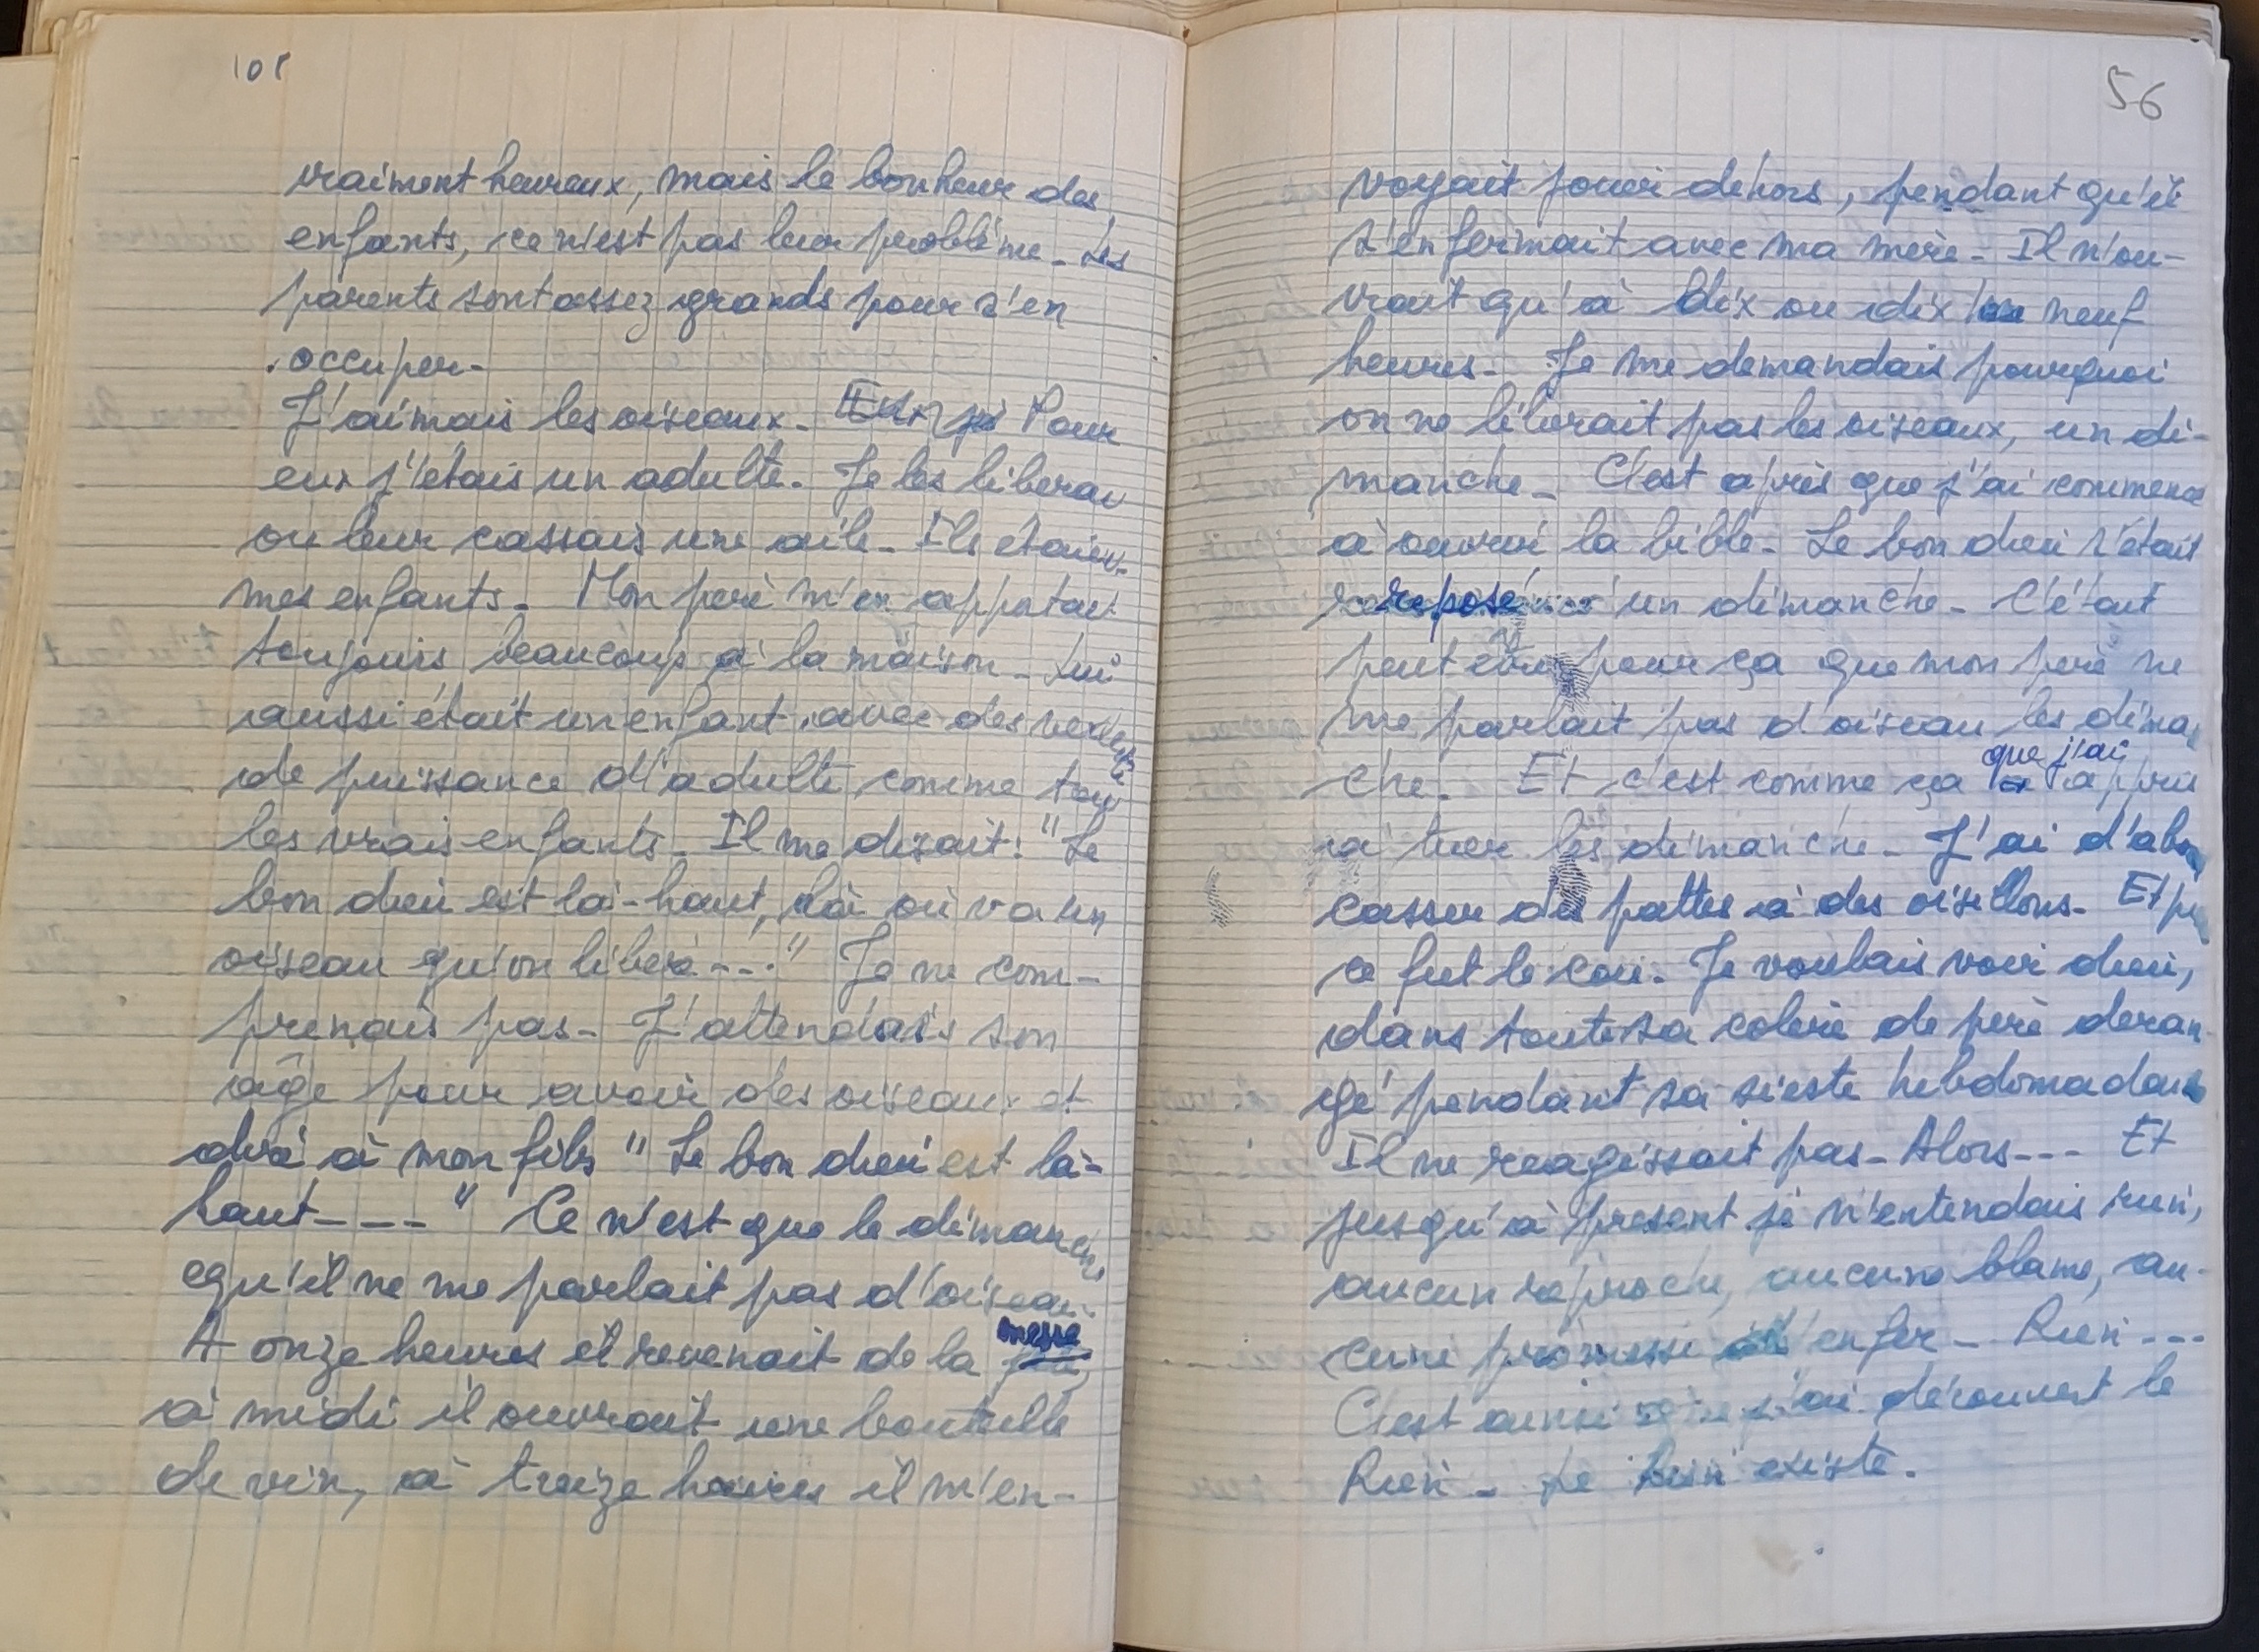 108
vraiment heureux, mais le bonheur des
enfants, ce n'est pas leur problème. Les
parents sont assez grands pour s'en
occuper.
J'aimais les oiseaux. Pour
eux j'étais un adulte. Je les liberai
ou leur cassais une aile. Ils étaient
mes enfants. Mon père m'en apportait
toujours beaucoup à la maison. Lui
aussi était un enfant avec des
de puissance d'adulte comme tous
les vrais enfants. Il me disait: "Le
bon dieu est là-haut, là où va un
oiseau qu'on libère..." Je ne com-
prenais pas. J'attendais son
âge pour avoir des oiseaux et
dire à mon fils "Le bon dieu est là-
haut..." Ce n'est que le dimanche
qu'il ne me parlait pas d'oiseau.
A onze heures il revenait de la messe
à midi il ouvrait une bouteille
de vin, à treize heures il m'en-
56
voyait jouer dehors, pendant qu'il
s'enfermait avec ma mère. Il n'ou-
vrait qu'à dix ou dix neuf
heures. Je me demandais pourquoi
on ne libérait pas les oiseaux, un di-
manche. C'est après que j'ai commencé
à ouvrir la bible. Le bon dieu s'était
reposé un dimanche. C'était
peut être pour ça que mon père ne
me parlait pas d'oiseau les diman
che. Et c'est comme ça que j'ai appris
à tuer les dimanche. J'ai d'abord
casser des pattes à des oisillons. Et puis
ce fut le cou. Je voulais voir dieu,
dans toute sa colère de père déran
gé pendant sa sieste hebdomadaire
Il ne reagissait pas. Alors... Et
jusqu'à présent je n'entendais rien,
aucun reproche, aucune blame, au-
cune promesse d'enfer. Rien...
C'est ainsi que j'ai découvert le
Rien. Le Rien existe.